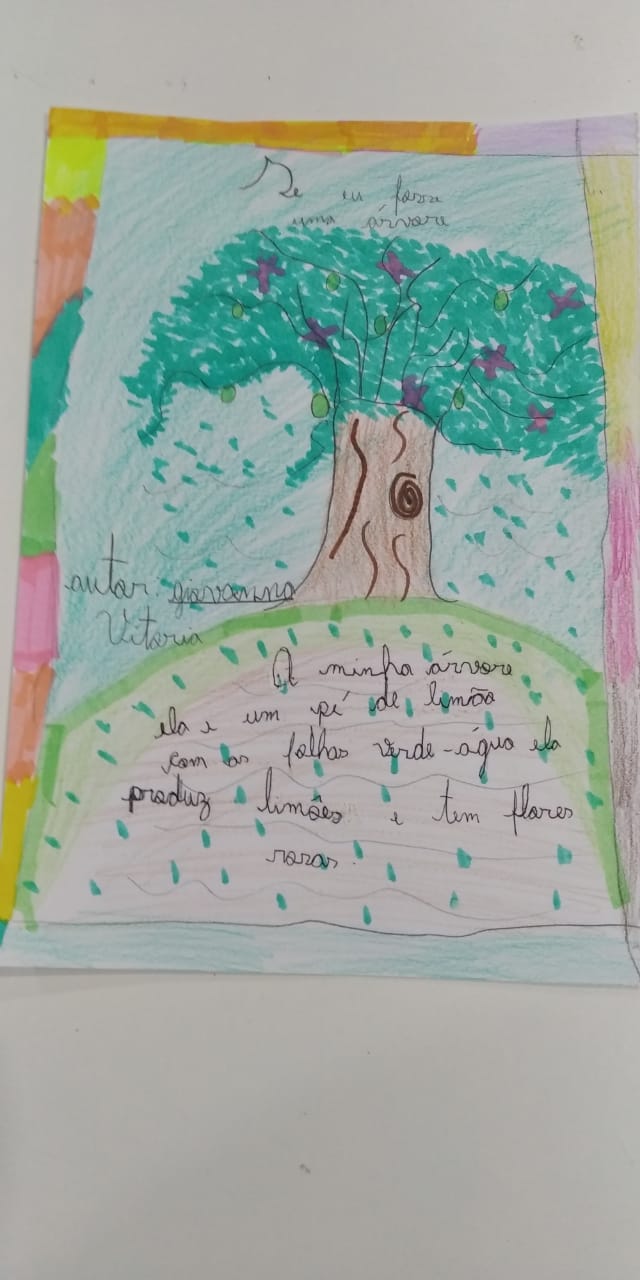 Se eu fosse
uma árvore
autor giovanna
Vitoria
A minha árvore
ela e um pé de limão
com as folhas verde-água ela
produz limões e tem flores
rosas.